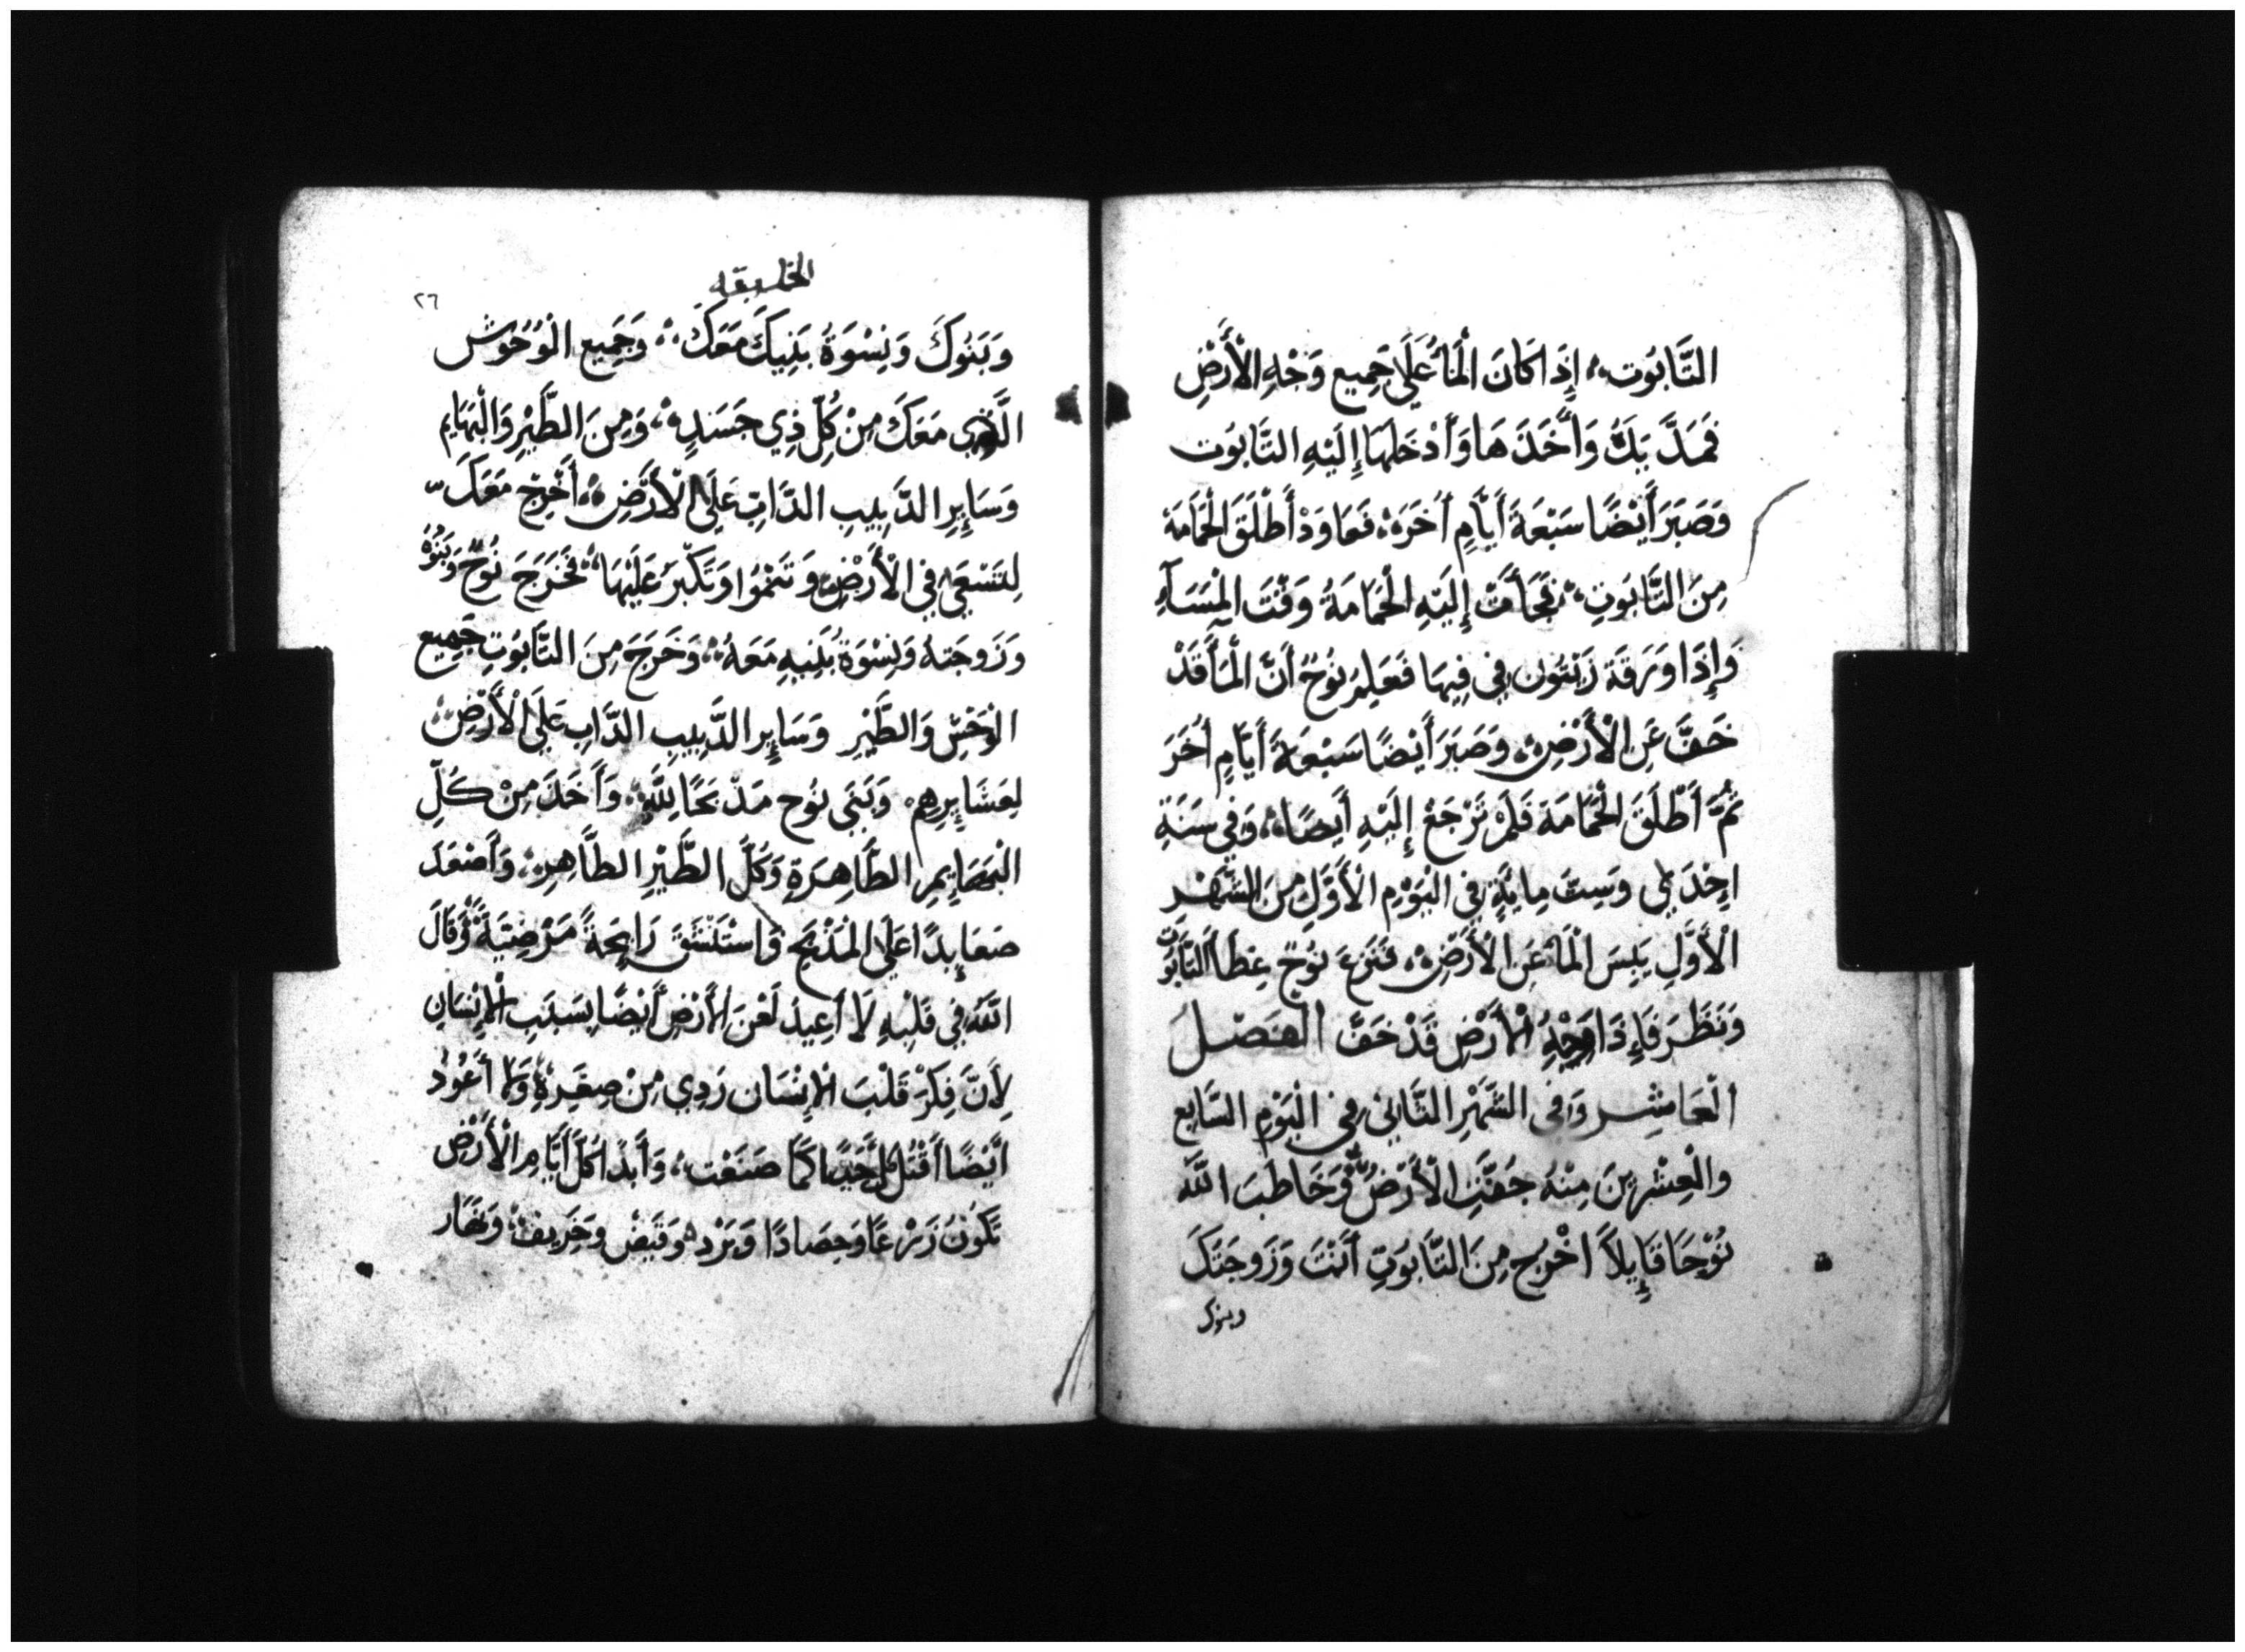 التَّابُوت إِذَا كَانَ الْمَاءُ عَلَى جَمِيع وَجْهِ الْأَرْضِ
فَمَدَّ يَدَهُ وَأَخَذَهَا وَأَدْخَلَهَا إِلَيْهِ التَّابُوت
وَصَبَرَ أَيْضًا سَبْعَةَ أَيَّامٍ أُخَرَ فَعَاوَدْ أَطْلَقَ الْحَمَامَة
مِنَ التَّابُوتِ فَجَاءَتْ إِلَيْهِ الْحَمَامَةُ وَقْتَ الْمَسَآءِ
وَإِذَا وَرَقَة زَيْتُون فِي فِيهَا فَعَلِمَ نُوحٌ أَنَّ الْمَاءَ قَدْ
خَفَّ عَنِ الْأَرْضِ وَصَبَرَ أَيْضًا سَبْعَةَ أَيَّامٍ أُخَرَ
ثُمَّ أَطْلَقَ الْحَمَامَةَ فَلَمْ تَرْجَعْ إِلَيْهِ أَيْضًا وَفِي سَنَةِ
احِدَى وَسِتّ مِايَةٍ فِي الْيَوْمِ الْأَوَّلِ مِنَ الشَّهْرِ
الْأَوَّلِ يَبِسَ الْمَاءُ عَنِ الْأَرْضِ فَنَزَعَ نُوحٌ غِطَاءَ التَّابُوت
وَنَظَرَ فَإِذَا وَجْهُ الْأَرْضِ قَدْ خَفَّ الفصل
الْعَاشِر وَفِي الشَّهْرِ الثَّانِي فِي الْيَوْمِ السَّابِع
وَالْعِشْرِينَ مِنْهُ جَفَّتِ الْأَرْضُ وَخَاطَبَ اللَّه
نُوْحًا قَايِلاً اخْرُج مِنَ التَّابُوتِ أَنْتَ وَزَوجَتَكَ
وبنوك
الخليقه
٢٦
وَبَنُوكَ وَنِسْوَةُ بَنِيكَ مَعَكَ وَجَمِيع الْوُحُوش
الَّذِي مَعَكَ مِنْ كُلِّ ذِي جَسَدٍ وَمِنَ الطَّيْرِ وَالْبَهَايِم
وَسَايِرِ الدَّبِيبِ الدَّابِّ عَلَى الْأَرْضِ أَخْرِجْ مَعَكَ
لِتَسْعَى فِي الْأَرْضِ وَتَنْمُوا وَتَكْبُرَ عَلَيْهَا فَخَرَجَ نُوحٌ وَبَنُوْهُ
وَزَوجَتهُ وَنِسْوَةُ بَنِيهِ مَعَهُ وَخَرَجَ مِنَ التَّابُوتِ جَمِيع
الْوَحْشِ وَالطَّيْرِ وَسَايِر الدَّبِيبِ الدَّابِ عَلَى الْأَرْضِ
لِعَشَايِرِهِمْ وَبَنَى نُوح مَذْبَحًا لِلَّهِ وَأَخَذَ مِنْ كُلِّ
الْبَهَايِمِ الطَّاهِرَةِ وَكُلَّ الطَّيْرِ الطَّاهِرِ وَأَصْعَدَ
صَعَايِدًا عَلَى الْمَذْبَحِ وَاسْتَنْشَقَ رَايِحَةً مَرْضِيَّةً وَقَالَ
اللَّهُ فِي قَلْبِهِ لَا أُعِيدُ لَعْنَ الأَرْضِ أَيْضًا بِسَبَبِ الْإِنْسَانِ
لِأَنَّ فِكَرَ قَلْبَ الْإِنْسَانِ رَدِي مِنْ صِغَرِهِ وَلَا أَعُودُ
أَيْضًا أَقْتُل كُلَّ حَيًّا كَمَا صَنَعْت وَأَبَدًا كُلَّ أَيَّامِ الْأَرْضِ
تَكُونُ زَرْعًا وَحِصَادًا وَبَرْد وَقَيْض وَخَرِيف وَنَهَار